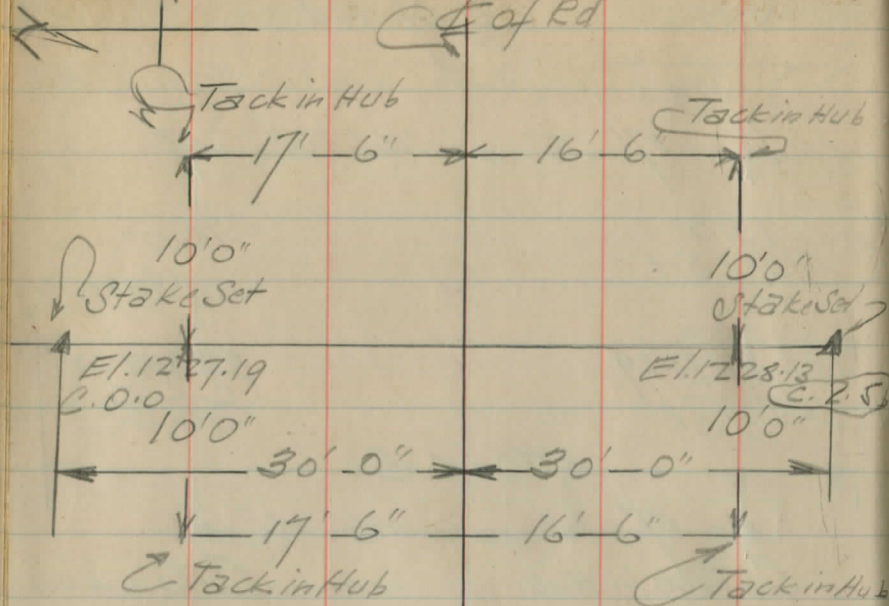 ℄ of Rd
Tack in Hub
Tack in Hub
17' - 6"
16' - 6"
10'0"
10'0"
Stake Set
Stake Set
El. 1227.19
El. 1228.13
C. 0.0
C. 2.5
10'0"
10'0"
30' - 0"
30' - 0"
17' - 6"
16' - 6"
Tack in Hub
Tack in Hub